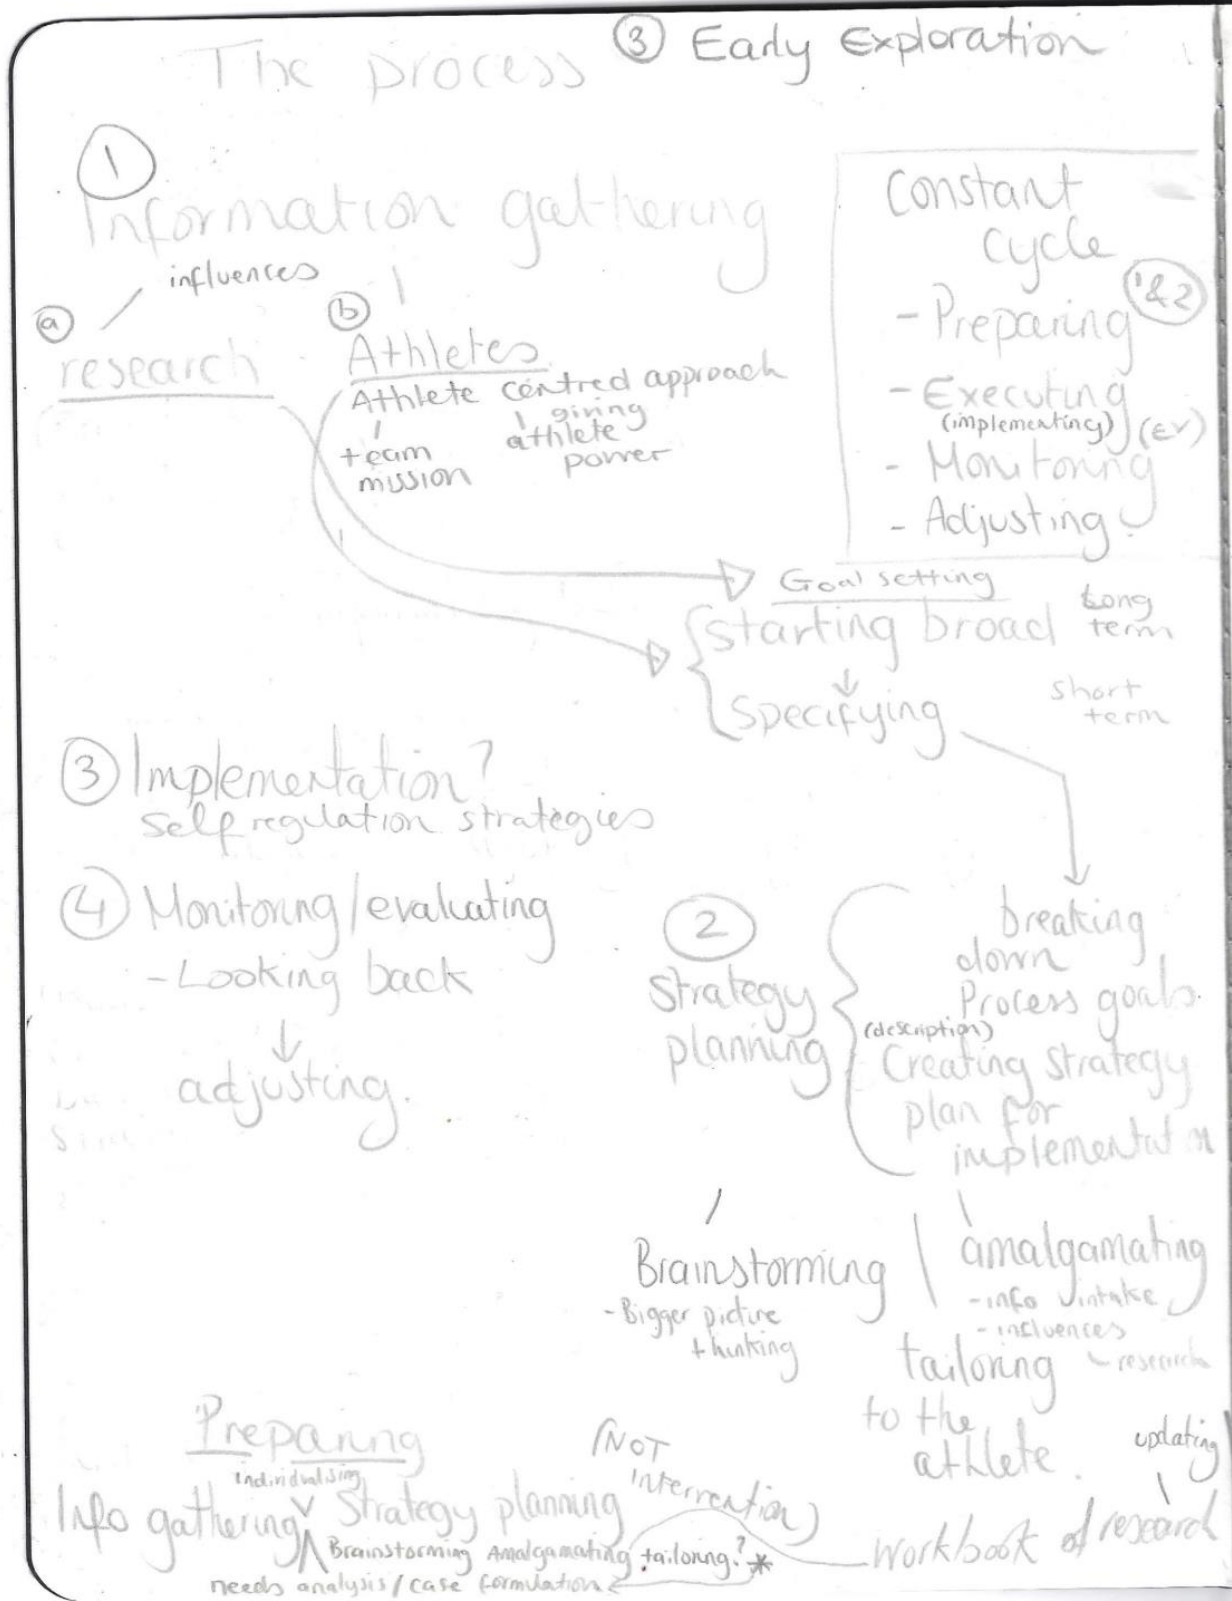 The process
③ Early Exploration
①
Information gathering
influences
ⓐ
research
ⓑ
Athletes
Athlete centred approach
team
mission
giving
athlete
power
Constant
cycle
- Preparing 1&2
- Executing
(implementing) (EV)
- Monitoring
- Adjusting
Goal setting
Starting broad
Long
term
↓
Specifying
short
term
③ Implementation?
Self regulation strategies
④ Monitoring/evaluating
- Looking back
↓
adjusting.
②
Strategy
planning
breaking
down
Process goals.
(description)
Creating strategy
plan for
implementation
Brainstorming
- Bigger picture
thinking
amalgamating
- info intake
- influences
- research
tailoring
to the
athlete.
updating
workbook of research
Preparing
individualising
Info gathering Strategy planning
(NOT
intervention)
Brainstorming Amalgamating tailoring? *
needs analysis/case formulation